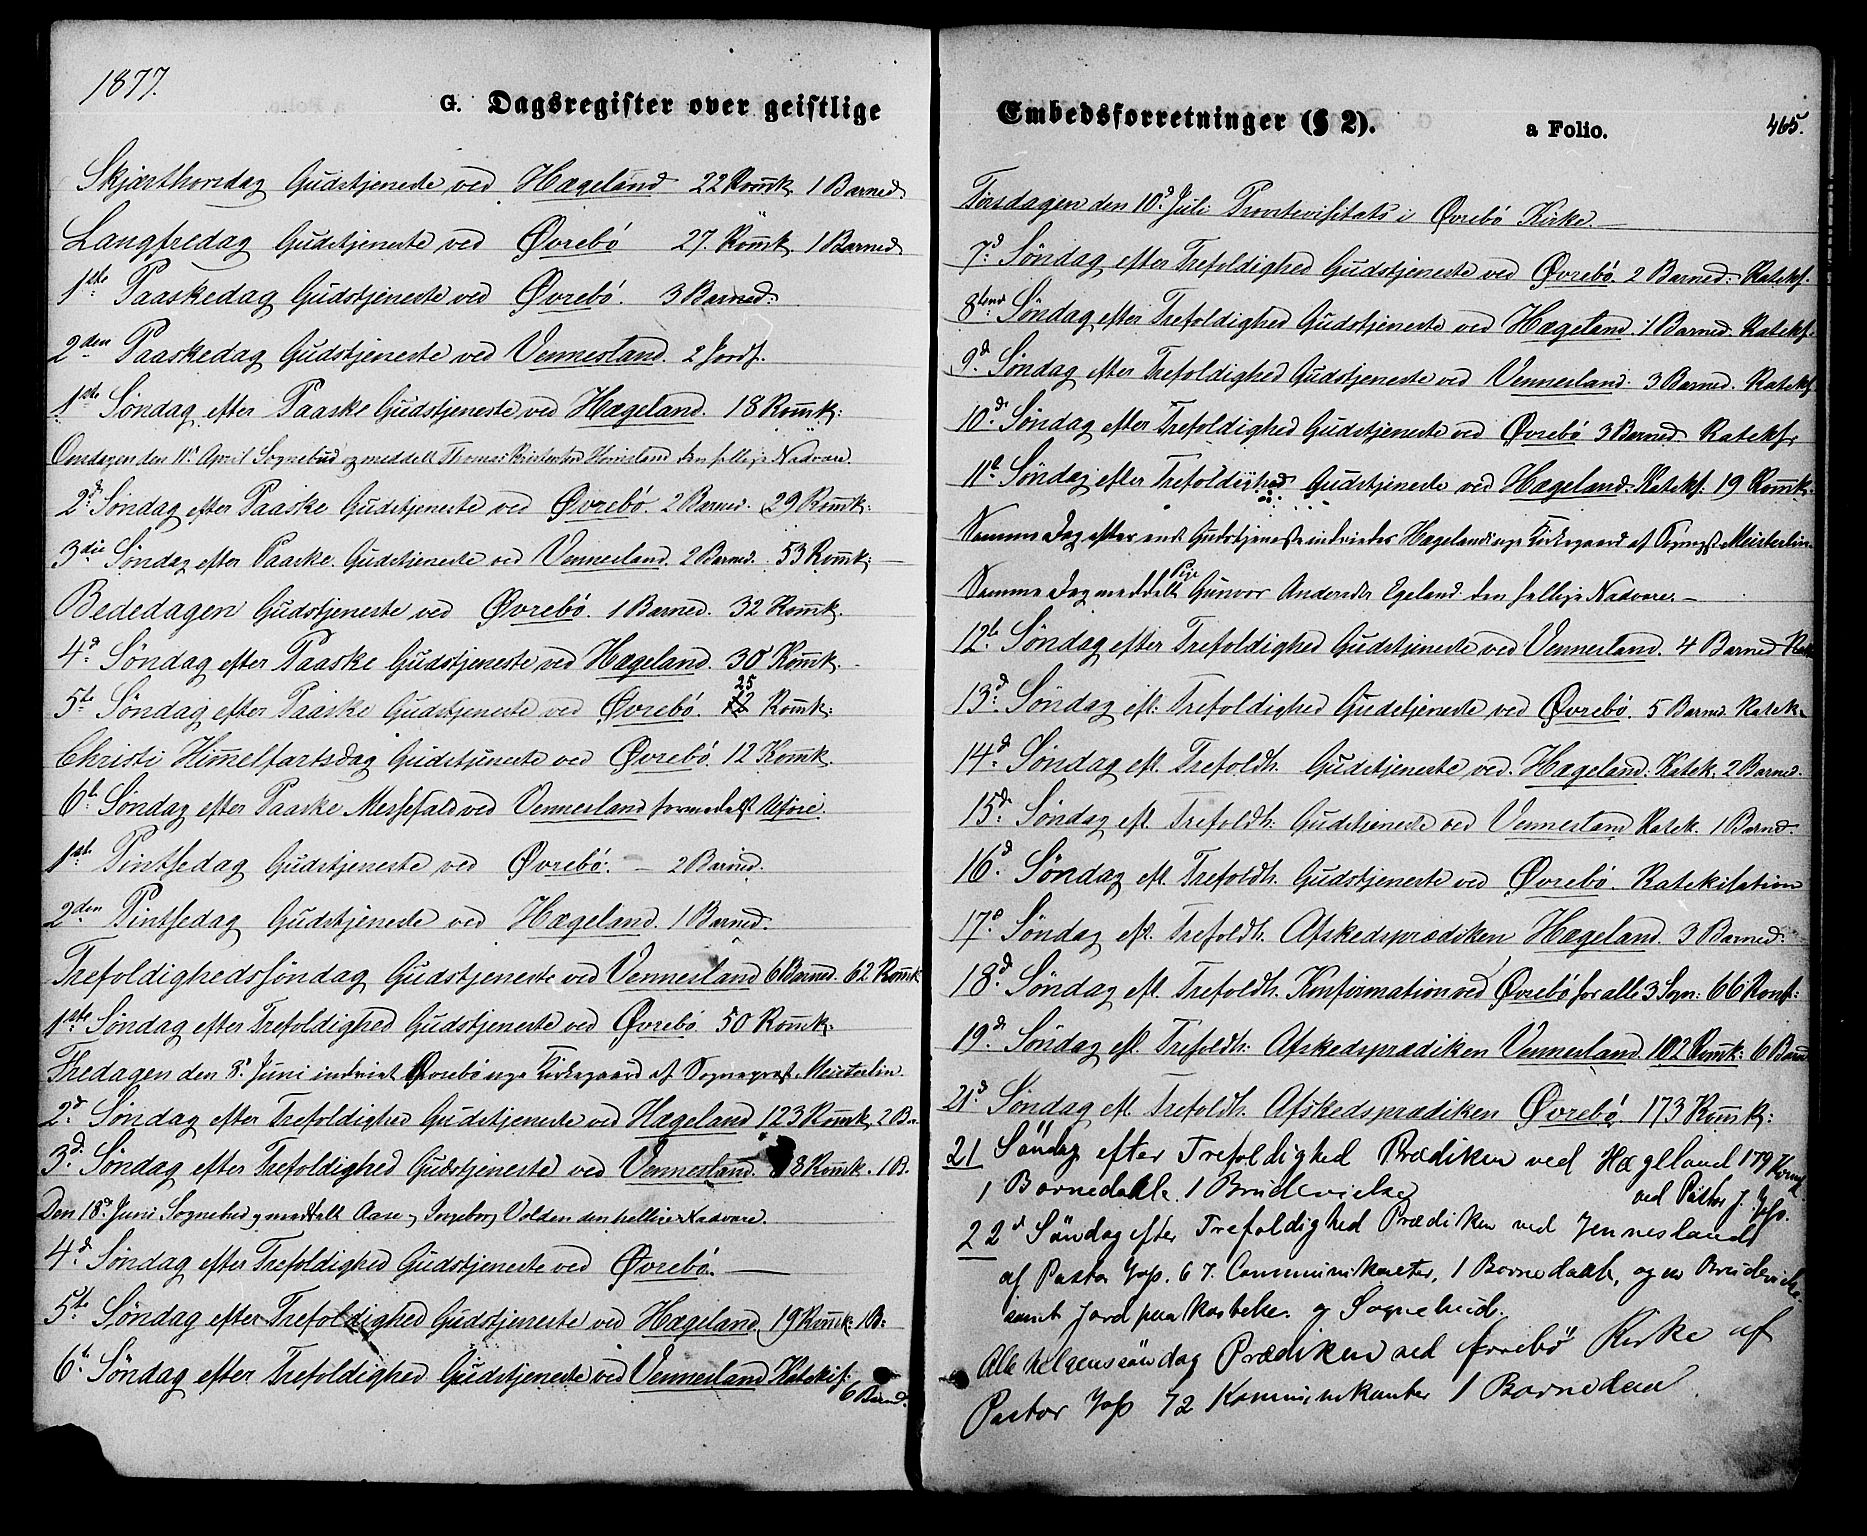 1877.
G. Dagsregister over geistlige
Skjærthorsdag Gudstjeneste ved Hægeland 22 Komk. 1 Barned
Langfredag Gudstjeneste ved Øvrebö 27. Komk 1 Barned
1ste Paaskedag Gudstjeneste ved Øvrebö. 3 Barned:
2den Paaskedag Gudstjeneste ved Vennesland. 2 Jordf.
1ste Söndag efter Paaske Gudstjeneste ved Hægeland. 18 Komk:
Onsdagen den 11. April Sognebud og meddelt Thomas Hovisland den hellige Nadvere.
2d. Söndag efter Paaske Gudstjeneste ved Øvrebö. 2 Barned. 29 Komk:
3die Söndag efter Paaske. Gudstjeneste ved Vennesland. 2 Barned. 53 Komk:
Bededagen Gudstjeneste ved Øvrebö. 1 Barned. 32 Komk.
4d. Söndag efter Paaske Gudstjeneste ved Hægeland. 30 Komk.
5te Söndag efter Paaske Gudstjeneste ved Øvrebö. 25 Komk:
Christi Himmelfartsdag Gudstjeneste ved Øvrebö 12 Komk.
6te Söndag efter Paaske Messefald ved Vennesland formedelst Uføre.
1ste Pintsedag Gudstjeneste ved Øvrebö. – 2 Barned.
2den Pintsedag Gudstjeneste ved Hægeland. 1 Barned.
Trefoldighedssöndag Gudstjeneste ved Vennesland 6 Barned. 62 Komk
1ste Söndag efter Trefoldighed Gudstjeneste ved Øvrebö 50 Komk.
Fredagen den 8. Juni indviet Øvrebö nye Kirkegaard af Sognepræst Meisterlin.
2d. Söndag efter Trefoldighed Gudstjeneste ved Hægeland 123 Komk. 2 B
3d. Söndag efter Trefoldighed Gudstjeneste ved Vennesland. 8 Komk. 1 B.
Den 18d Juni Sognebud og meddelt Aase og Ingeborg Volden den hellige Nadvere.
4d. Söndag efter Trefoldighed Gudstjeneste ved Øvrebö. —
5te Söndag efter Trefoldighed Gudstjeneste ved Hægeland. 19 Komk. 1 B:
6te Söndag efter Trefoldighed Gudstjeneste ved Vennesland Katekis:
6 Barned.
Embedsforretninger (§ 2). a Folio. 465.
Tirsdagen den 10d Juli Provstevisitats i Øvrebö Kirke. —
7d. Söndag efter Trefoldighed Gudstjeneste ved Øvrebö. 2 Barned: Katekis.
8tende Söndag efter Trefoldighed Gudstjeneste ved Hægeland. 1 Barned. Katekis.
9d. Söndag efter Trefoldighed Gudstjeneste ved Vennesland. 3 Barned. Katekis
10d. Söndag efter Trefoldighed Gudstjeneste ved Øvrebö 3 Barned Katekis
11te Söndag efter Trefoldighed Gudstjeneste ved Hægeland. Katekis. 19 Komk.
Samme Dag efter endt Gudstjeneste indviedes Hægelands nye Kirkegaard af Sognepr. Meisterlin.
Samme Dag meddelt Pige Gunvor Andersdr Egeland den hellige Nadvere. –
12te Söndag efter Trefoldighed Gudstjeneste ved Vennesland. 4 Barned Kat
13d. Söndag eft. Trefoldighed Gudstjeneste ved Øvrebö. 5 Barned. Katek.
14d. Söndag eft. Trefoldh. Gudstjeneste ved. Hægeland. Katek. 2 Barned.
15d. Söndag eft. Trefoldh. Gudstjeneste ved Vennesland Katek. 1 Barned.
16d. Söndag eft. Trefoldh. Gudstjeneste ved Øvrebö. Katekisation
17d. Söndag eft. Trefoldh. Afskedsprædiken Hægeland. 3 Barned.
18d. Söndag eft. Trefoldh. Konfirmation ved Øvrebö for alle 3 Sogn: 66 Konf:
19d. Söndag eft. Trefoldh: Afskedsprædiken Vennesland. 102 Komk: 6 Barned
21d. Söndag eft. Trefoldh. Afskedsprædiken Øvrebö. 173 Komk:
21 Söndag efter Trefoldighed Prædiken ved Hægelland 179 Komk
1 Barnedaab. 1 Brudevielse ved Pastor J.
22d Söndag efter Trefoldighed Prædiken ved Vennesland
af Pastor 67. Communikanter, 1 Barnedaab, og en Brudevielse
samt Jordpaakastelse og Sognebud.
Allehelgenssöndag Prædiken ved Övrebö Kirke af
Pastor 72 Kommunikanter 1 Barnedaab